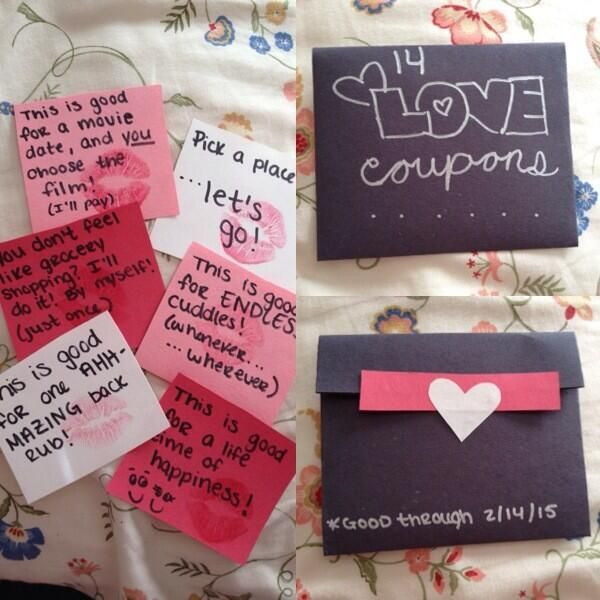 This is good
for a movie
date, and you
choose the
film!
(I'll pay)
Pick a place
...let's
go!
You don't feel
like grocery
shopping? I'll
do it! By myself!
(just once)
This is good
for ENDLESS
cuddles!
(whenever...
...wherever)
This is good
for one AHH-
MAZING back
rub!
This is good
for a life
time of
happiness!
14
LOVE
coupons
*GOOD through 2/14/15